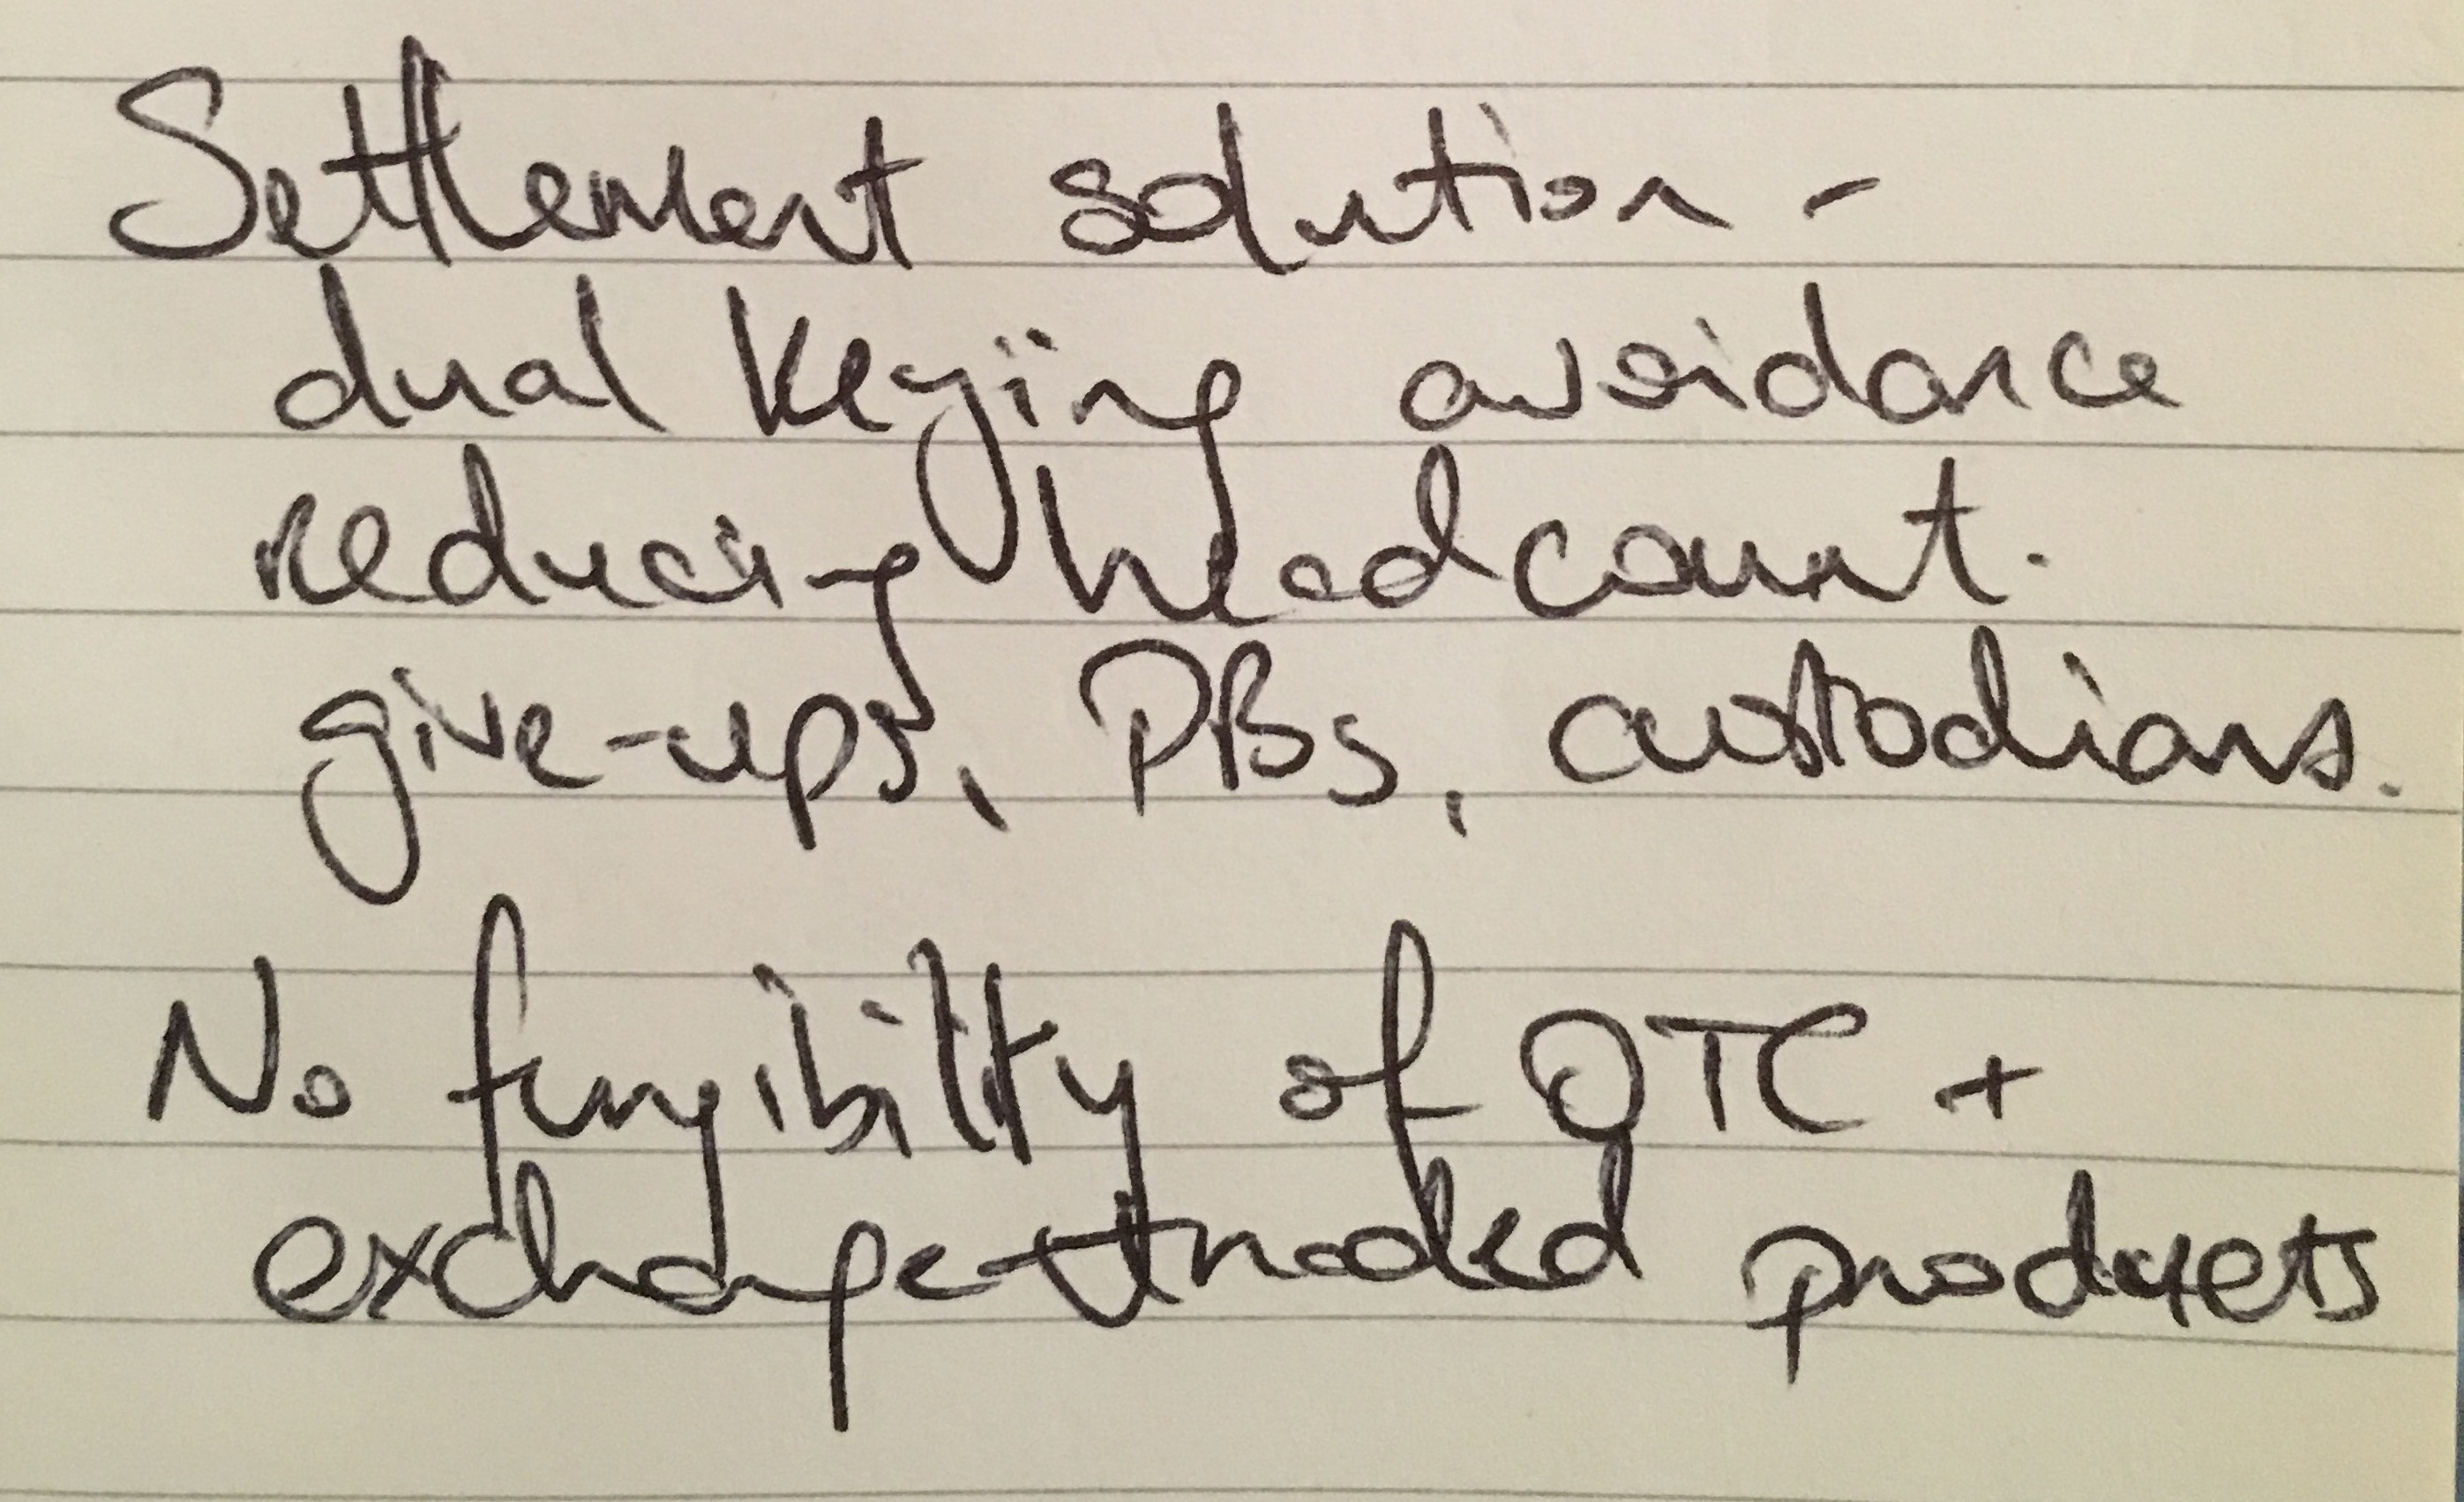 Settlement solution -
dual keying avoidance
reducing headcount.
give-ups, PBs, custodians.
No fungibility of OTC +
exchange-traded products